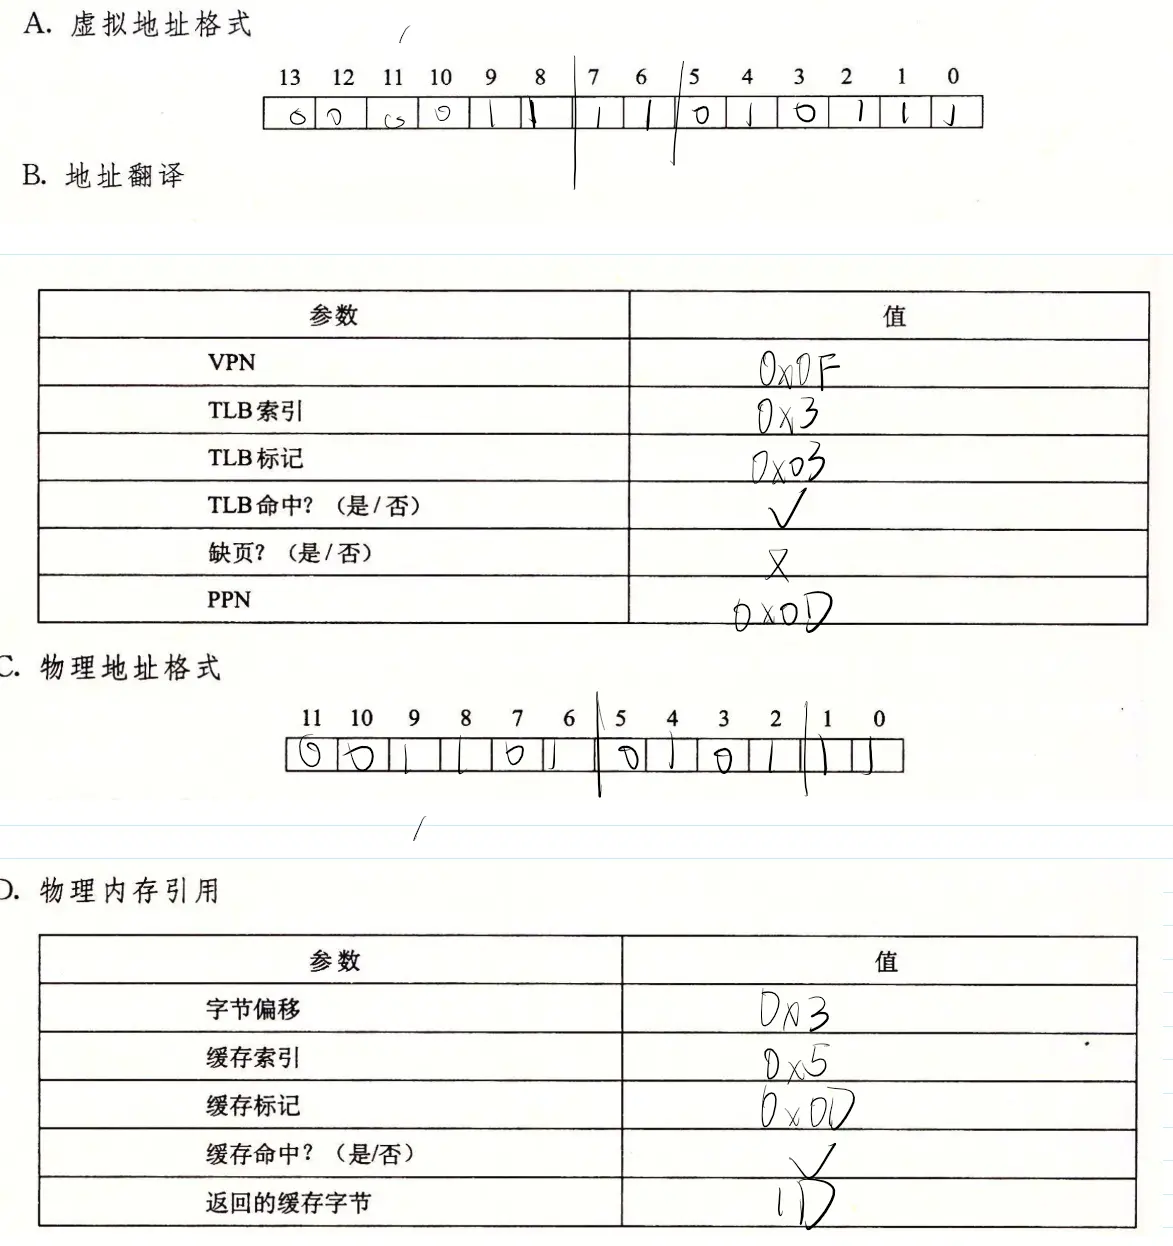 A. 虚拟地址格式
13 12 11 10 9 8 7 6 5 4 3 2 1 0
0 0 0 0 1 1 1 1 0 1 0 1 1 1
B. 地址翻译
参数 值
VPN 0x0F
TLB索引 0x3
TLB标记 0x03
TLB命中？（是/否） ✓
缺页？（是/否） ×
PPN 0x0D
C. 物理地址格式
11 10 9 8 7 6 5 4 3 2 1 0
0 0 1 1 0 1 0 1 0 1 1 1
D. 物理内存引用
参数 值
字节偏移 0x3
缓存索引 0x5
缓存标记 0x0D
缓存命中？（是/否） ✓
返回的缓存字节 1D